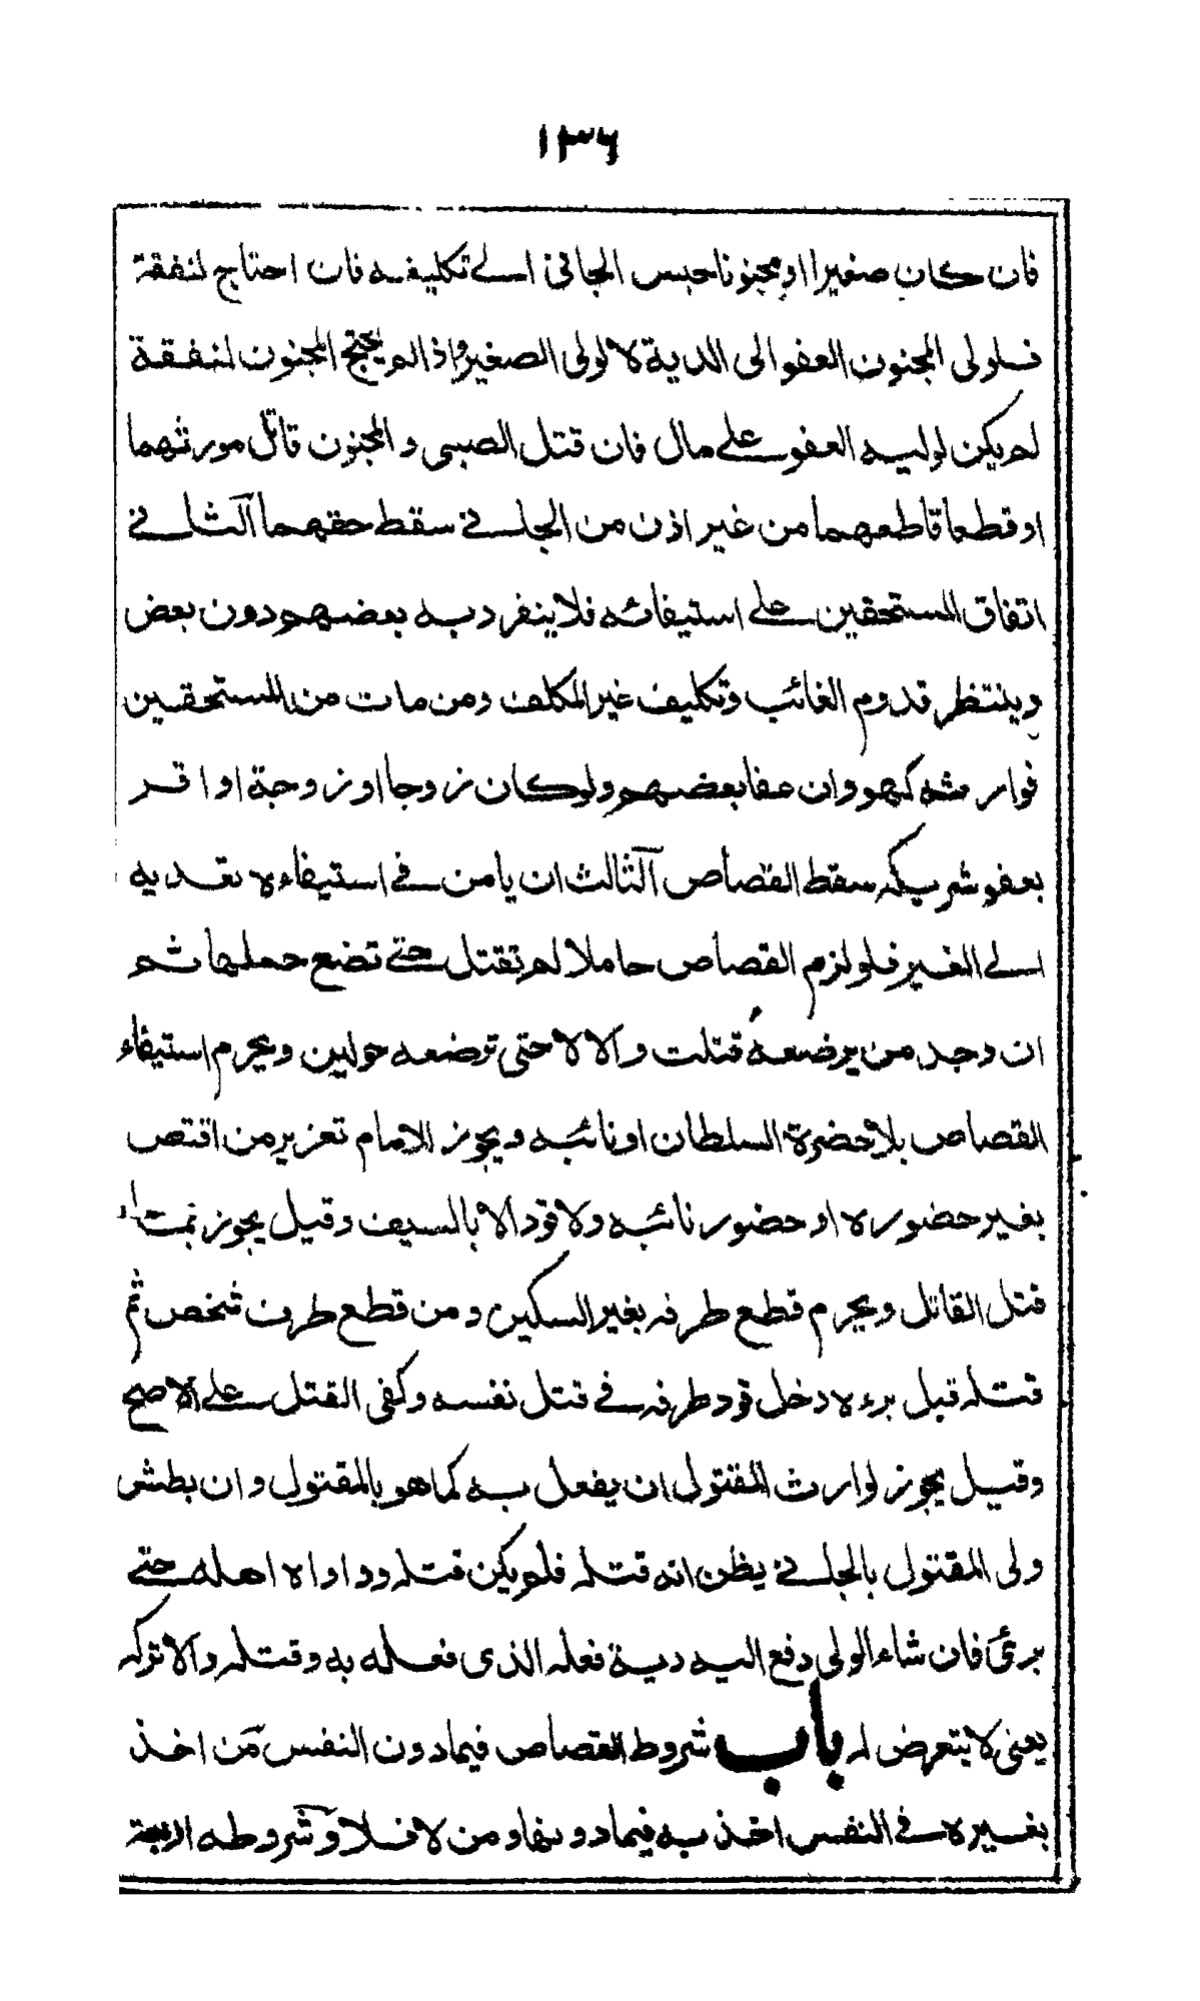 ١٣٦
فان كان صغيرا او مجنونا حبس الجاني الى تكليفه فان احتاج لنفقة
فلولى المجنون العفو الى الدية لا لولى الصغير واذا لم يحتج المجنون لنفقة
لم يكن لوليه العفو على مال فان قتل الصبى والمجنون قاتل مورثهما
او قطعا قاطعهما من غير اذن من الجاني سقط حقهما الثاني
اتفاق المستحقين على استيفائه فلا ينفرد به بعضهم دون بعض
وينتظر قدوم الغائب وتكليف غير المكلف ومن مات من المستحقين
فوارثه كهو وان عفا بعضهم ولو كان زوجا او زوجة او اقر
بعفو شريكه سقط القصاص الثالث ان يامن في استيفاءه تعديه
الى الغير فلو لزم القصاص حاملا لم تقتل حتى تضع حملها ثم
ان وجد من يرضعه قتلت والا لا حتى ترضعه حولين ويحرم استيفاء
القصاص بلا حضرة السلطان او نائبه ويجوز الامام تعزير من اقتص
بغير حضوره او حضور نائبه ولا قود الا بالسيف وقيل يجوز بمثل
قتل القاتل ويحرم قطع طرفه بغير السكين ومن قطع طرف شخص ثم
قتله قبل برءه دخل قود طرفه في قتل نفسه وكفى القتل على الاصح
وقيل يجوز لوارث المقتول ان يفعل به كما هو بالمقتول وان بطش
ولى المقتول بالجاني يظن انه قتله فلم يكن قتله وداواه اهله حتى
برئ فان شاء الولى دفع اليه دية فعله الذى فعله به وقتله والا تركه
يعنى لا يتعرض له باب شروط القصاص فيما دون النفس من اخذ
بغيره في النفس اخذ به فيما دونها ومن لا فلا وشروطه اربعة